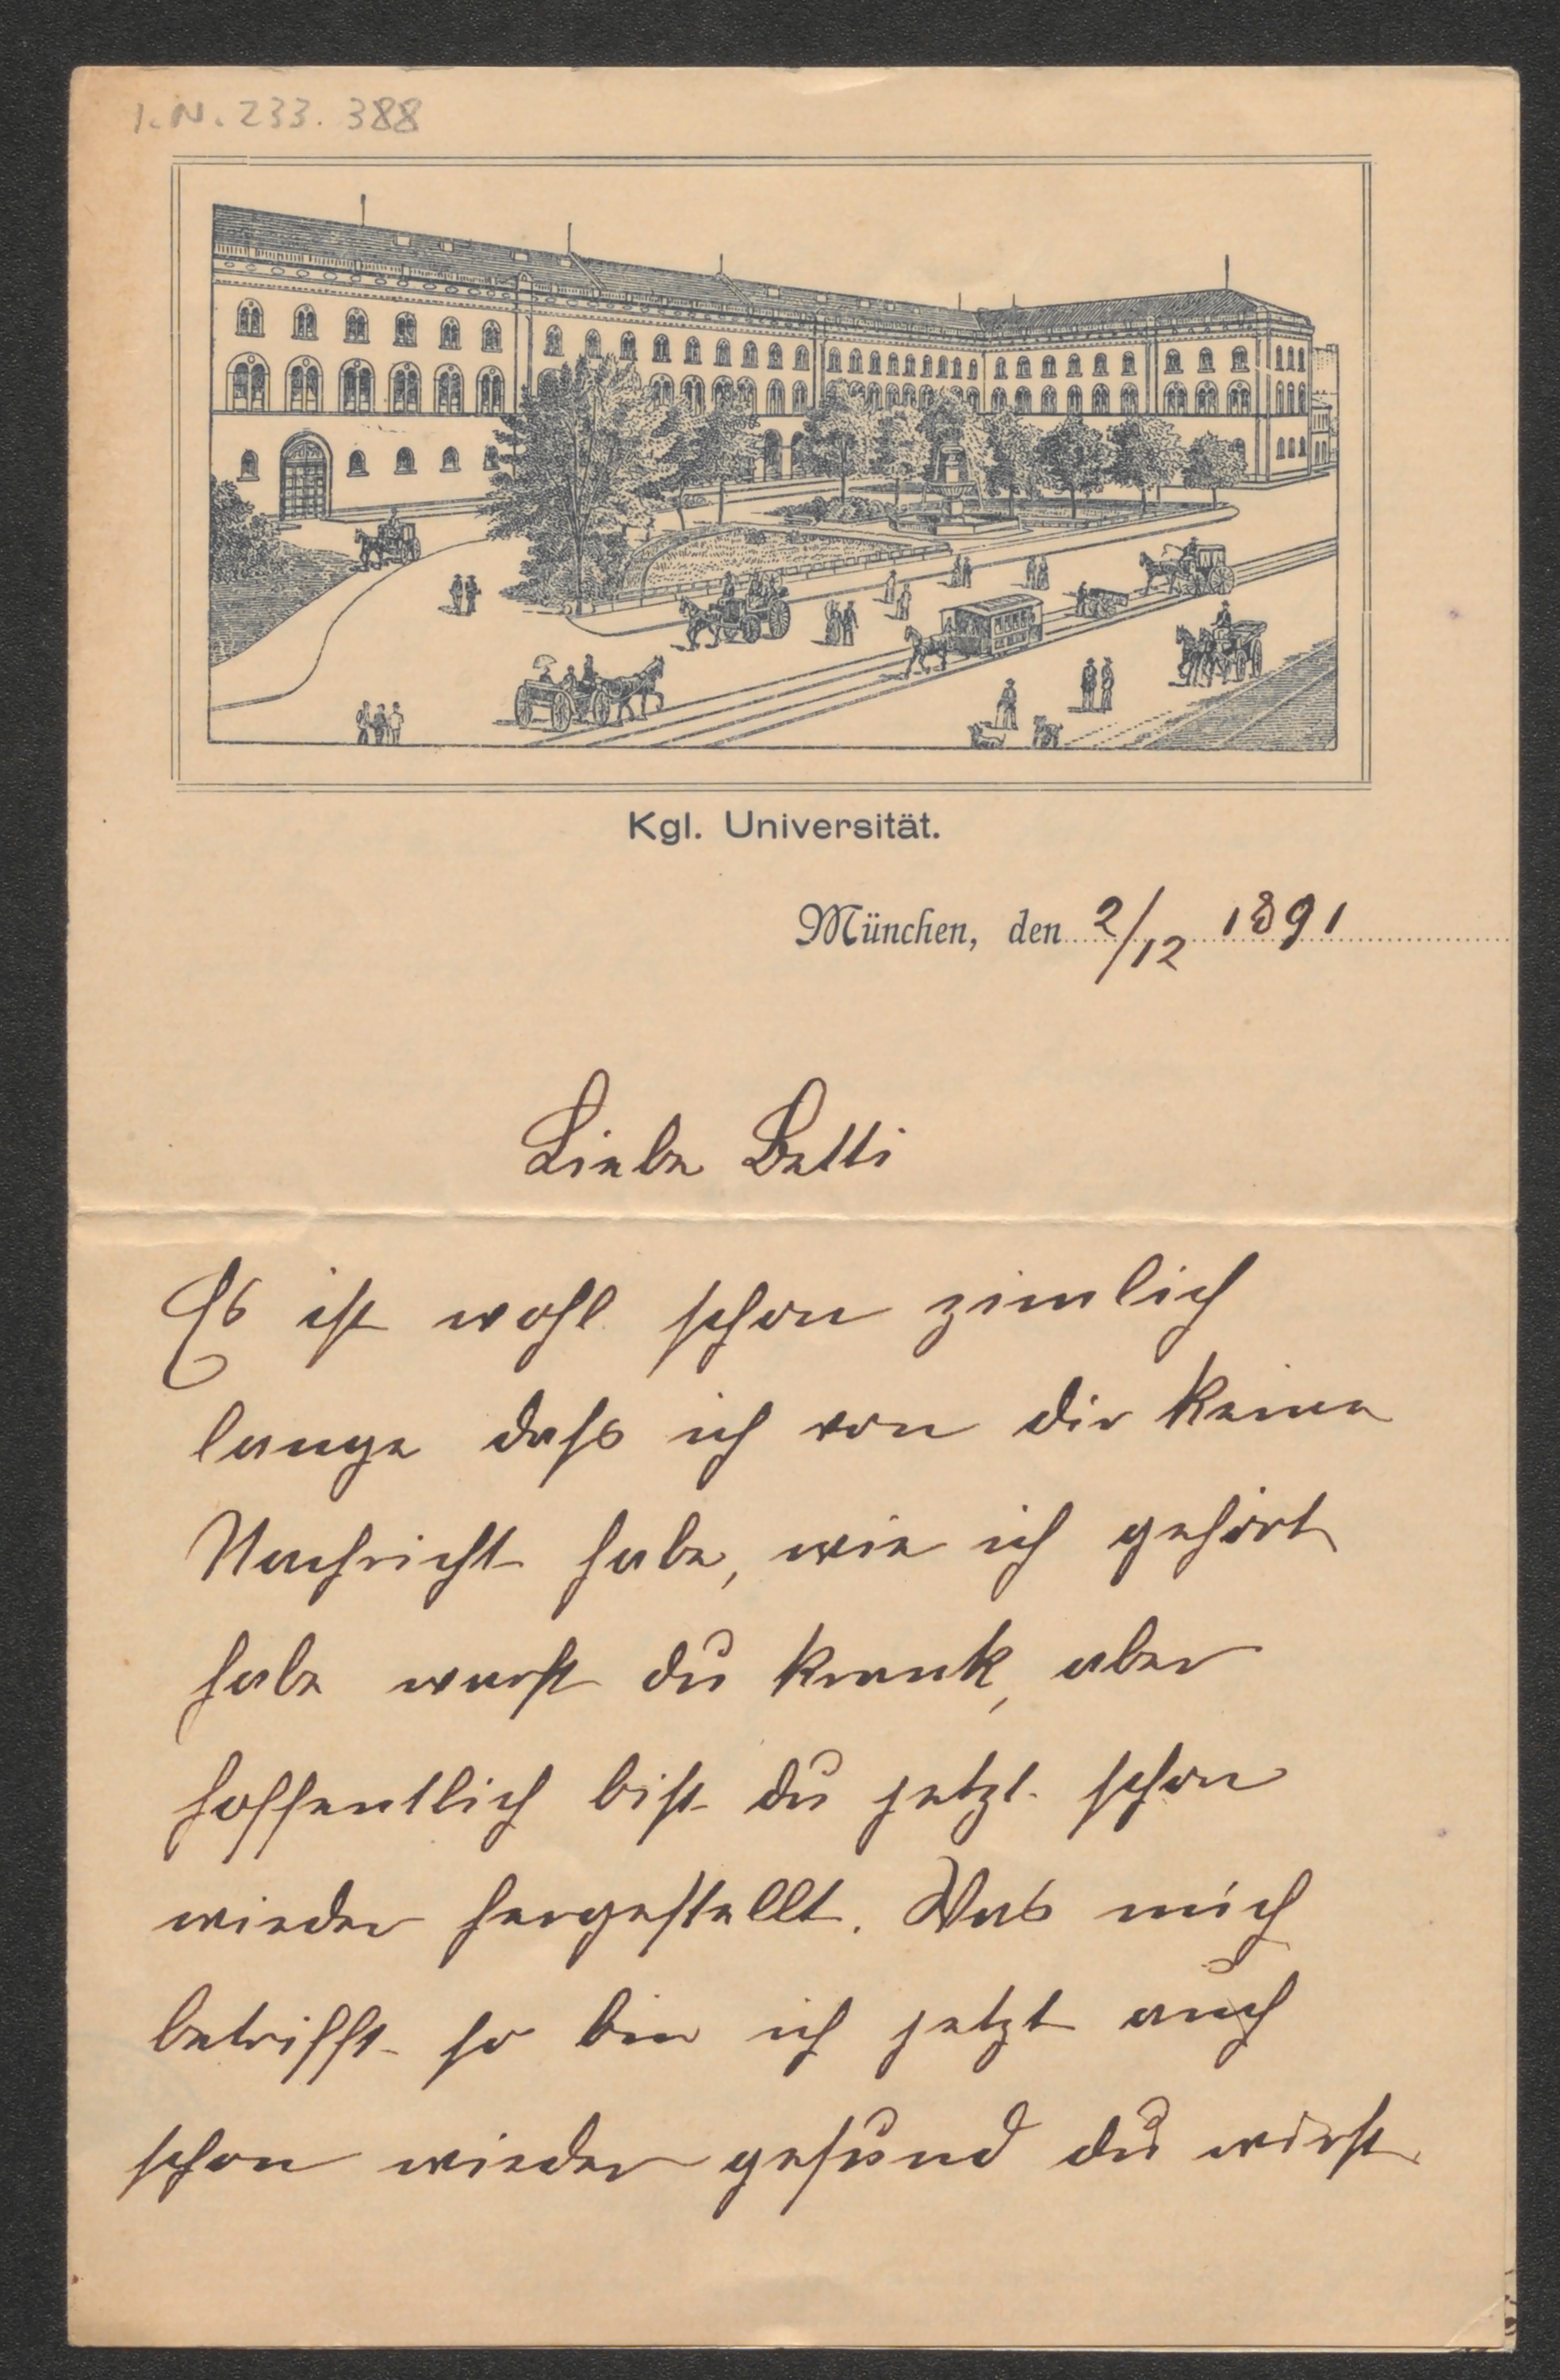 I.N. 233.388
Kgl. Universität.
München, den 2/12 1891
Liebe Betti
Es ist wohl schon zimlich
lange dass ich von dir keine
Nachricht habe, wie ich gehört
habe warst du krank, aber
hoffentlich bist du jetzt schon
wieder hergestellt. Was mich
betrifft so bin ich jetzt auch
schon wieder gesund du wirst